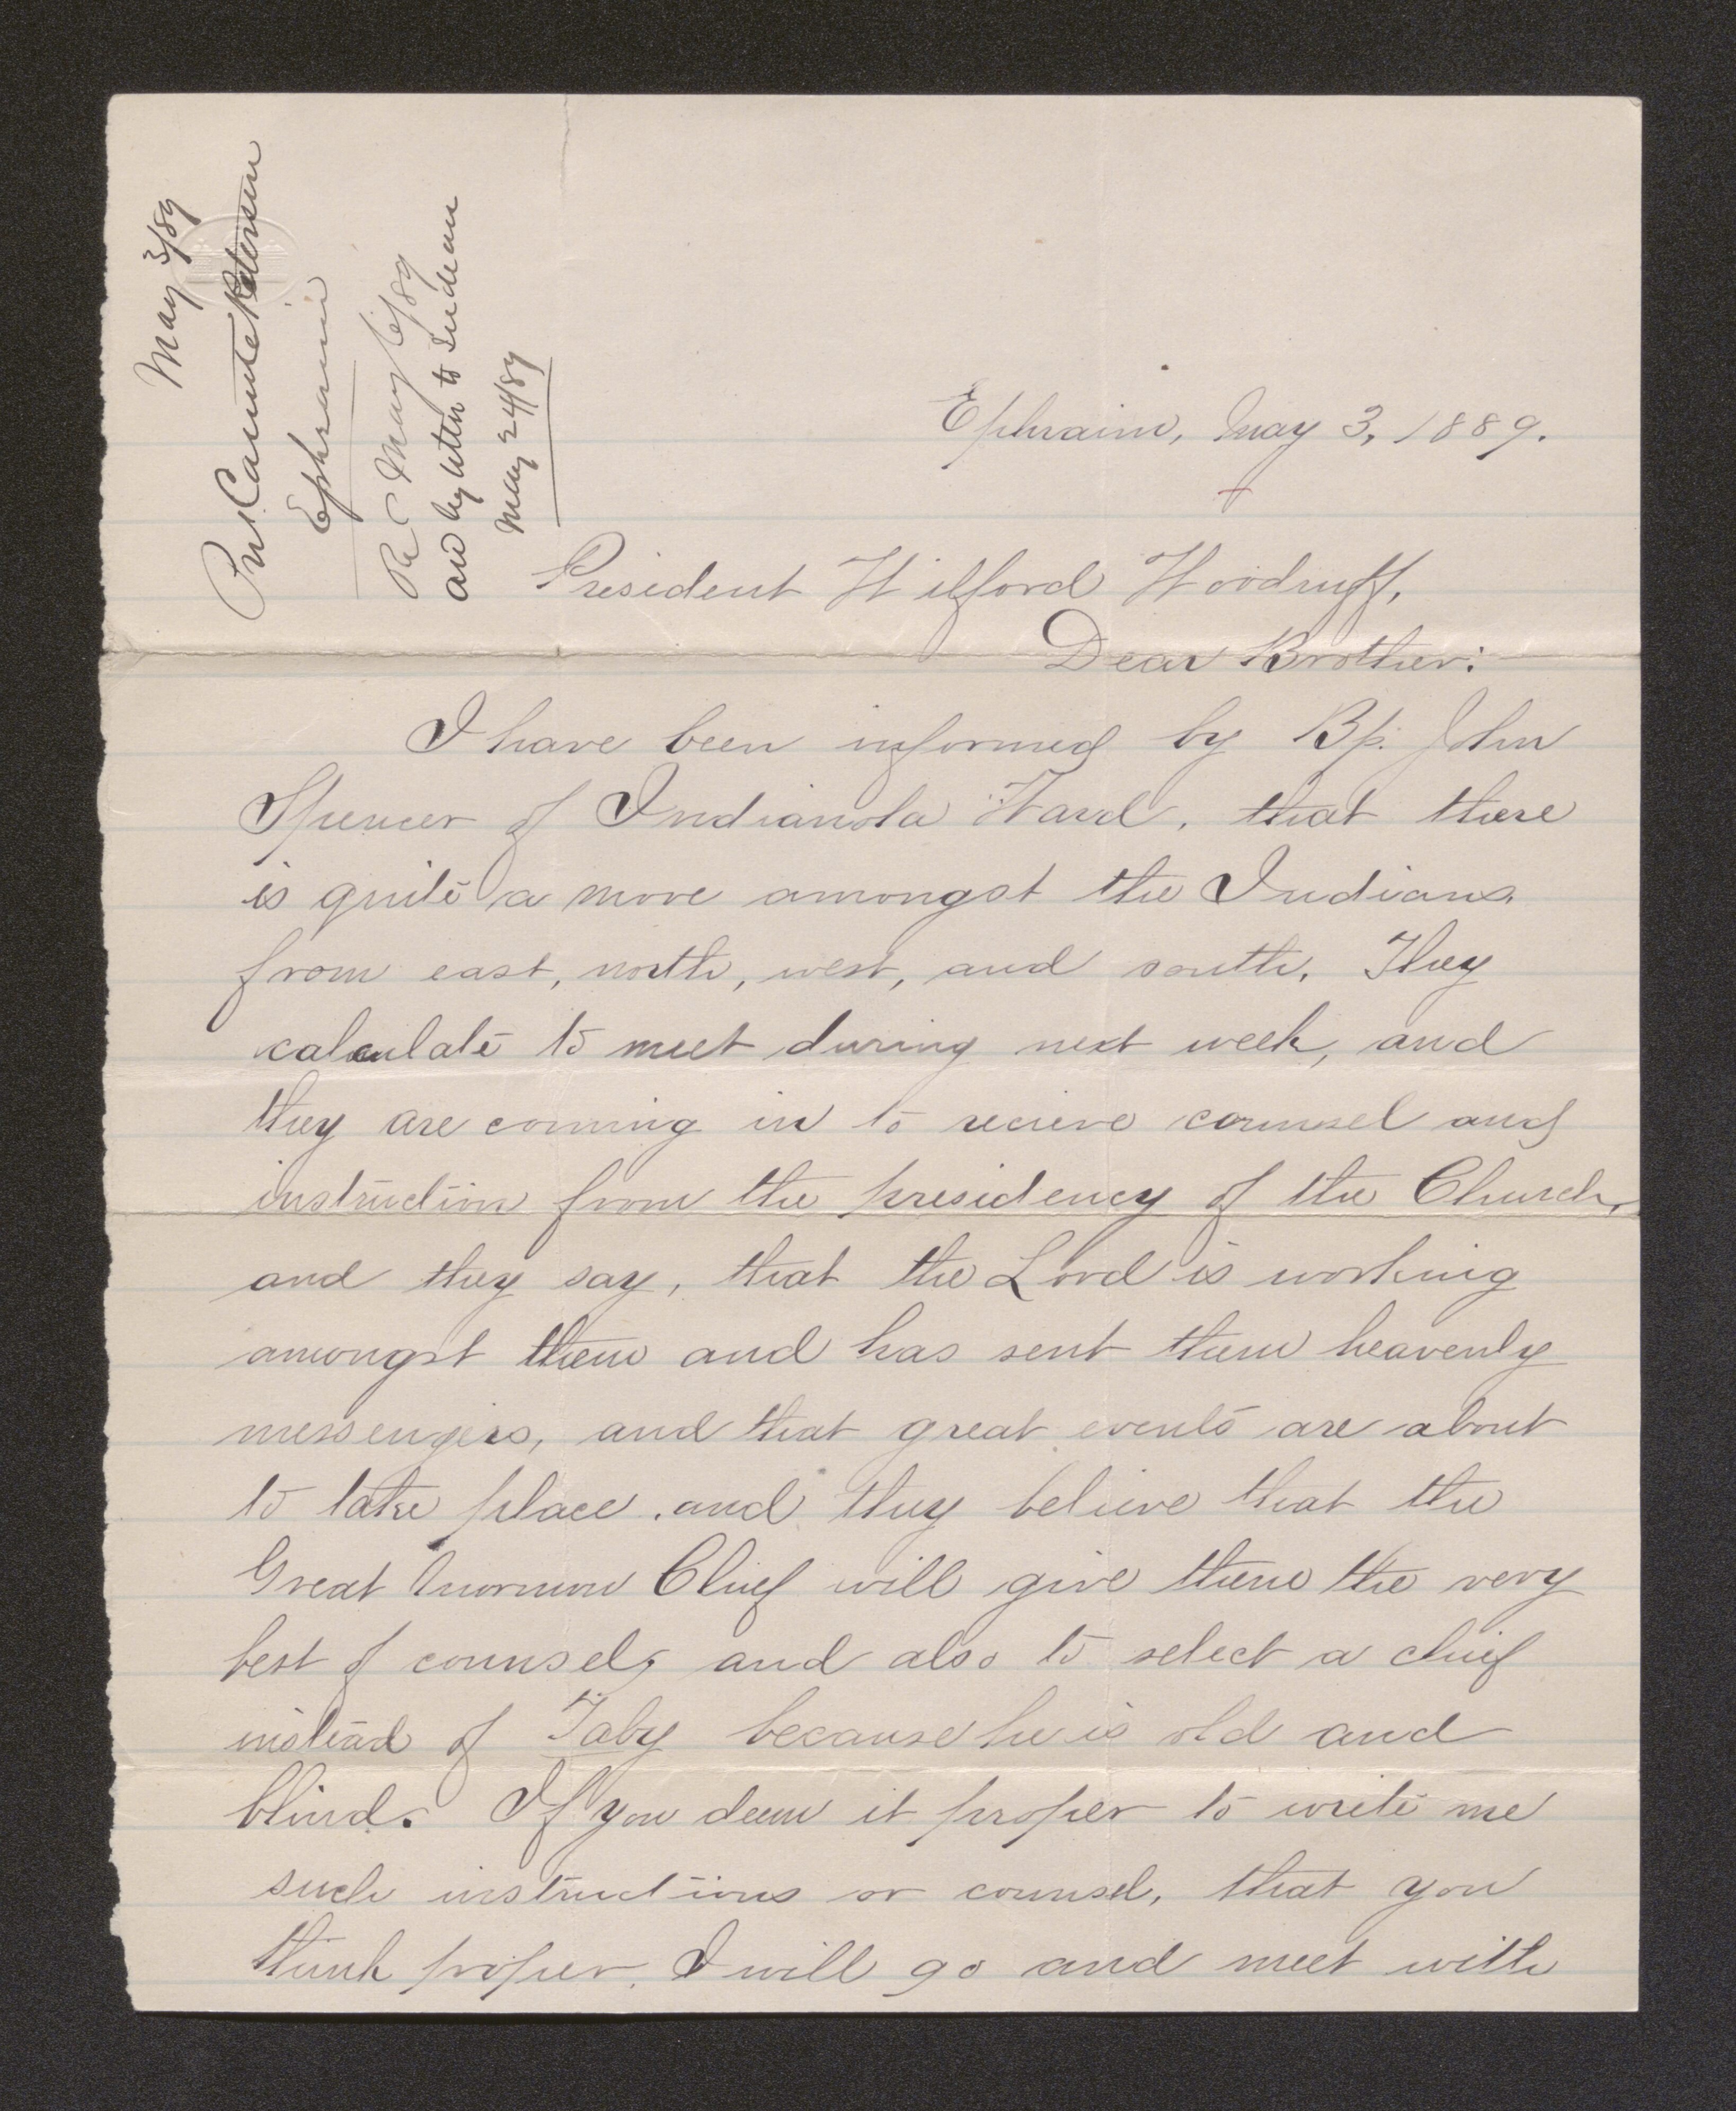 May 3/89
Pres Canute Peterson
Ephraim
Rec May 6/89
and by letter to Indian
May 24/89
Ephraim, May 3, 1889.
President Wilford Woodruff,
Dear Brother:
I have been informed by Bp. John
Spencer of Indianola Ward, that there
is quite a move amongst the Indians.
from east, north, west, and south. They
calculate to meet during next week, and
they are coming in to recieve counsel and
instruction from the presidency of the Church,
and they say, that the Lord is working
amongst them and has sent them heavenly
messengers, and that great events are about
to take place, and they believe that the
Great Mormon Chief will give them the very
best of counsel, and also to select a chief
instead of Taby because he is old and
blind. If you deem it proper to write me
such instructions or counsel, that you
think proper. I will go and meet with